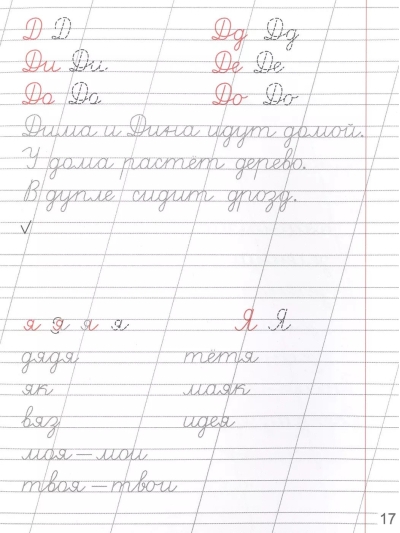 Д Д Дд Дд
Ди Ди Де Де
Да Да До До
Дима и Дина идут домой.
У дома растёт дерево.
В дупле сидит дрозд.
я я я я Я Я
дядя тётя
як маяк
вяз идея
моя – мои
твоя – твои
17